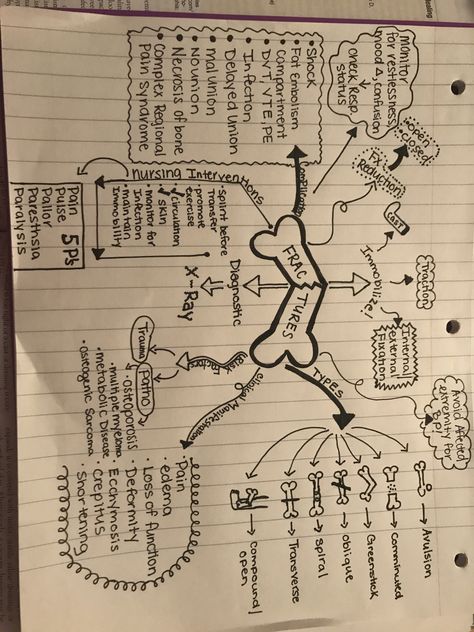 FRAC TURES
Complications
• Shock
• Fat Embolism
• Compartment
• DVT, VTE, PE
• Infection
• Delayed Union
• mal Union
• Nounion
• Necrosis of bone
• Complex Regional
Pain Syndrome
monitor
for restlessness,
mood Δ, confusion
↓
Check Resp.
Status
open
closed
Fx
Reduction
Cast
Immobilize!
Traction
Internal
External
Fixation
Avoid Affected
extremity for
BP!
TYPES
→ Avulsion
→ Comminuted
→ Greenstick
→ oblique
→ Spiral
→ Transverse
→ compound/
open
Clinical Manifestation
• Pain
• edema
• Loss of function
• Deformity
• Ecchymosis
• Crepitus
• Shortening
Risk Factors
Trauma
Patho
• osteoporosis
• multiple myeloma
• metabolic Disease
• osteogenic Sarcoma
Diagnostic
X-Ray
Nursing Interventions
• Splint before
Transfer
• promote
exercise
✓ circulation
✓ skin
• monitor for
Infection
• maintain
Immobility
5 P's
Pain
Pulse
Pallor
Paresthsia
Paralysis